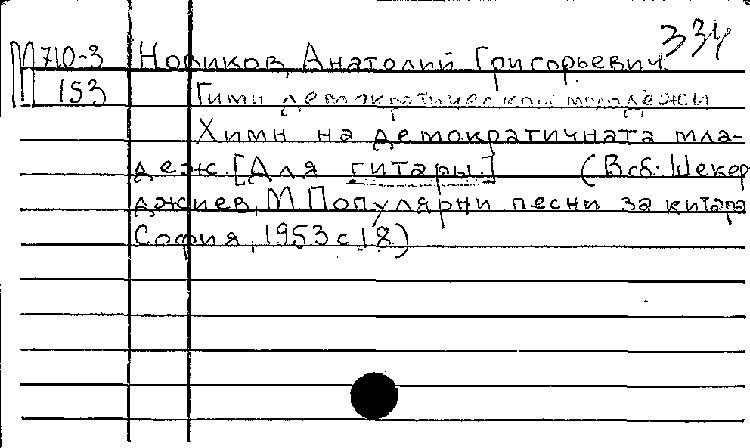 334
М710-3 Новиков, Анатолий Григорьевич.
153 Гимн демократической молодежи
Химн на демократичната мла-
деж. [Для гитары.] (В сб. Шекер
джиев, М. Популярни песни за китара
София, 1953 с 18)